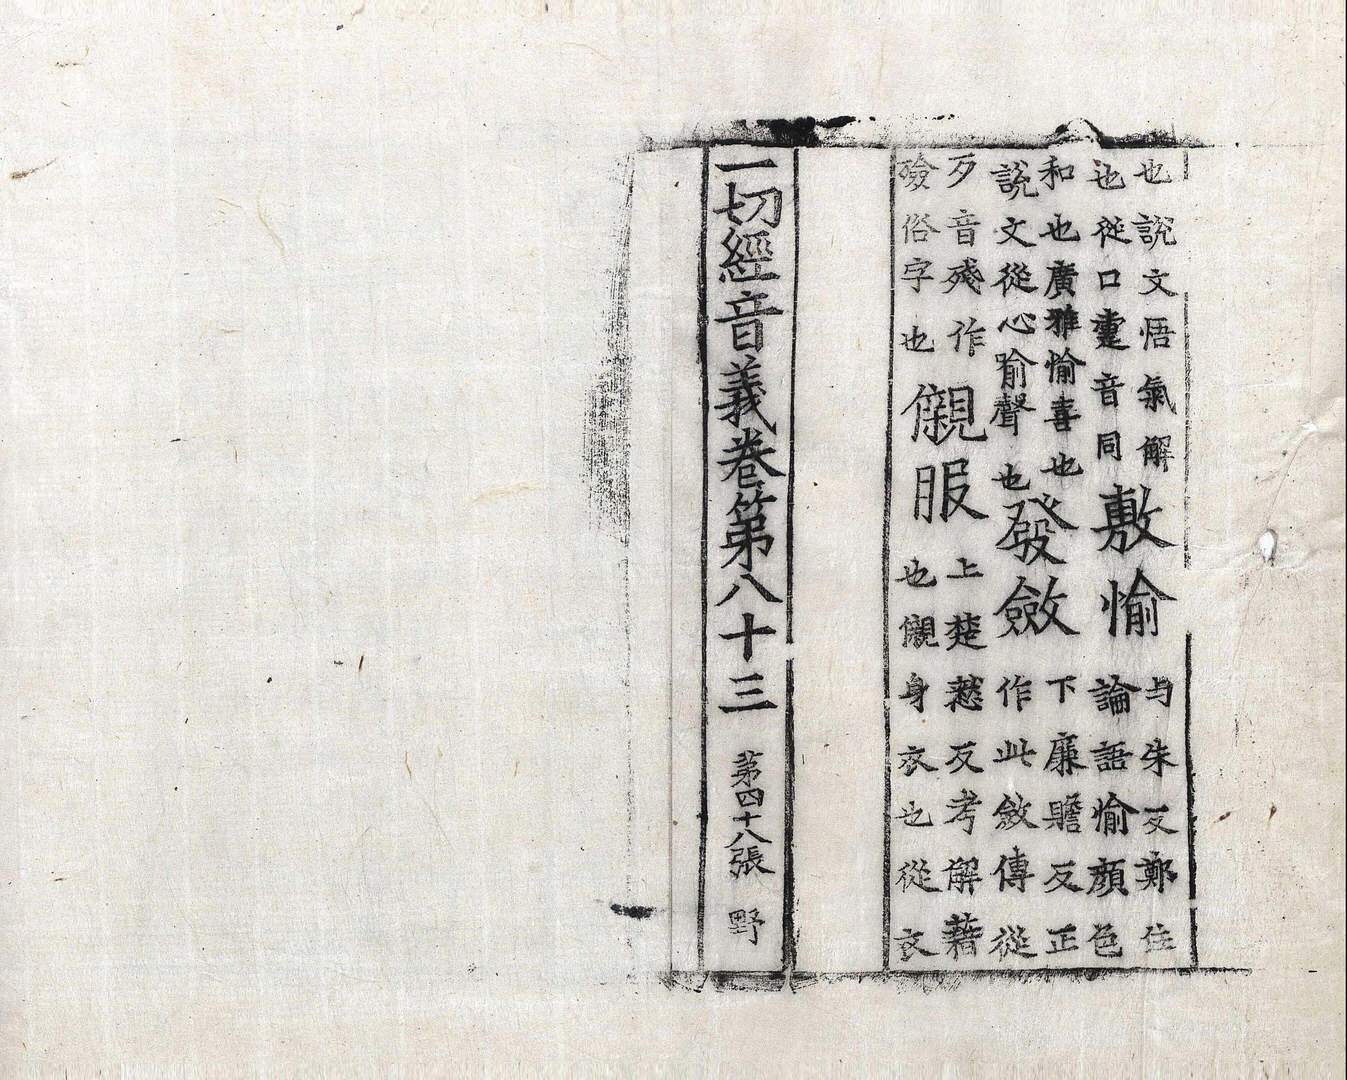 也說文悟氣解
也從口疐音同
敷愉
与朱反鄭住
論語愉顔色
和也廣雅愉喜也
說文從心俞聲也
發斂
下廉贍反正
作此斂傳從
歹音殘作
殮俗字也
儭服
上楚慭反考解藉
也儭身衣也從衣
一切經音義卷第八十三 第四十八張 野